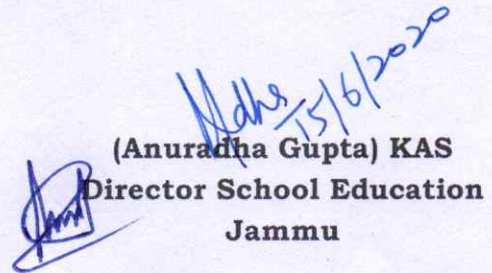 15/6/2020
(Anuradha Gupta) KAS
Director School Education
Jammu